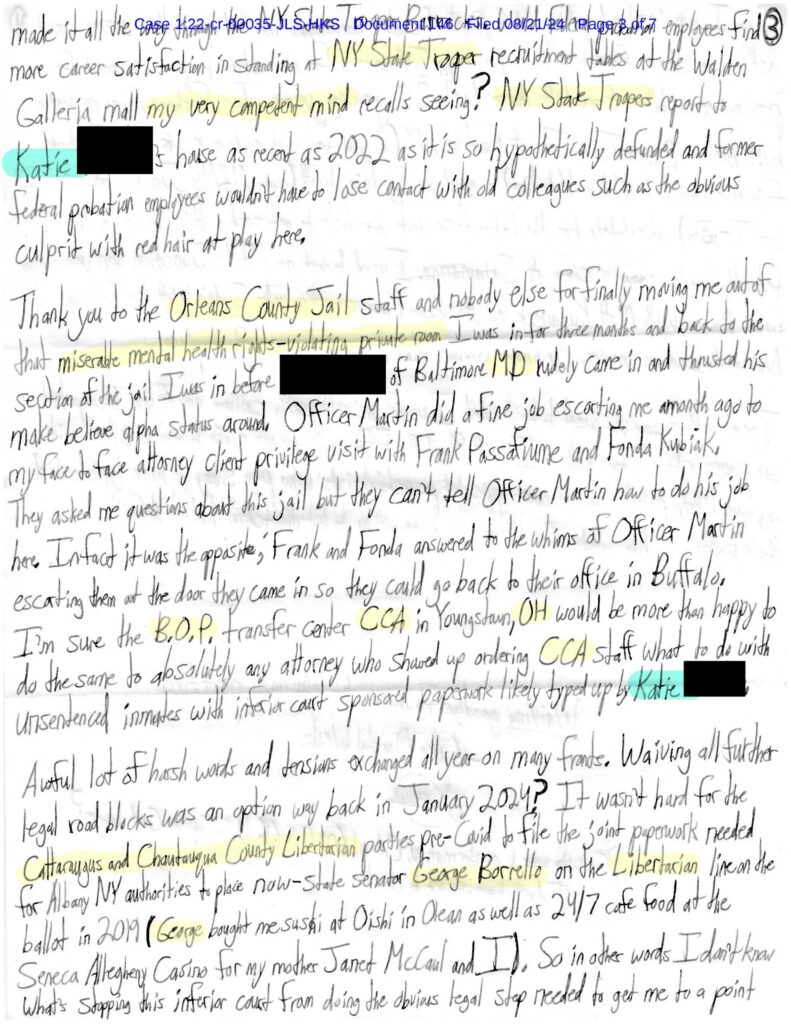 Case 1:22-cr-00035-JLS-HKS Document 146 Filed 08/21/24 Page 3 of 7
3
made it all the way through the NY State Trooper employees find
more career satisfaction in standing at NY State Trooper recruitment tables at the Walden
Galleria mall my very competent mind recalls seeing? NY State Troopers report to
Katie 's house as recent as 2022 as it is so hypothetically defunded and former
federal probation employees wouldn't have to lose contact with old colleagues such as the obvious
culprit with red hair at play here.
Thank you to the Orleans County Jail staff and nobody else for finally moving me out of
that miserable mental health rights-violating private room I was in for three months and back to the
section of the jail I was in before of Baltimore MD rudely came in and thrusted his
make believe alpha status around. Officer Martin did a fine job escorting me a month ago to
my face to face attorney client privilege visit with Frank Passafiume and Fonda Kubiak.
They asked me questions about this jail but they can't tell Officer Martin how to do his job
here. Infact it was the opposite, Frank and Fonda answered to the whims of Officer Martin
escorting them out the door they came in so they could go back to their office in Buffalo.
I'm sure the B.O.P. transfer center CCA in Youngstown, OH would be more than happy to
do the same to absolutely any attorney who showed up ordering CCA staff what to do with
unsentenced inmates with inferior court sponsored paperwork likely typed up by Katie .
Awful lot of harsh words and tensions exchanged all year on many fronts. Waiving all further
legal road blocks was an option way back in January 2024? It wasn't hard for the
Cattaraugus and Chautauqua County Libertarian parties pre-Covid to file the joint paperwork needed
for Albany NY authorities to place now-state senator George Borrello on the Libertarian line on the
ballot in 2019 (George bought me sushi at Oishi in Olean as well as 24/7 cafe food at the
Seneca Allegheny Casino for my mother Janet McCaul and I). So in other words I don't know
what's stopping this inferior court from doing the obvious legal step needed to get me to a point